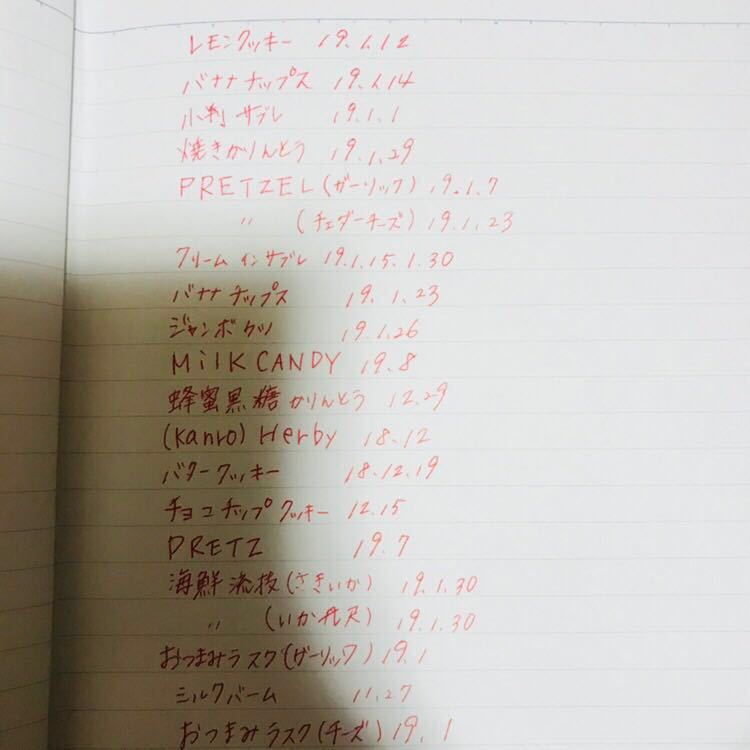 レモンクッキー 19.1.12
バナナチップス 19.1.14
小判サブレ 19.1.1
焼きかりんとう 19.1.29
PRETZEL(ガーリック) 19.1.7
〃 (チェダーチーズ) 19.1.23
クリームインサブレ 19.1.15.1.30
バナナチップス 19.1.23
ジャンボ 19.1.26
MilK CANDY 19.8
蜂蜜黒糖かりんとう 12.29
(Kanro) Herby 18.12
バタークッキー 18.12.19
チョコチップクッキー 12.15
PRETZ 19.7
海鮮 (さきいか) 19.1.30
〃 (いか) 19.1.30
おつまみラスク(ガーリック) 19.1
ミルクバーム 11.27
おつまみラスク(チーズ) 19.1